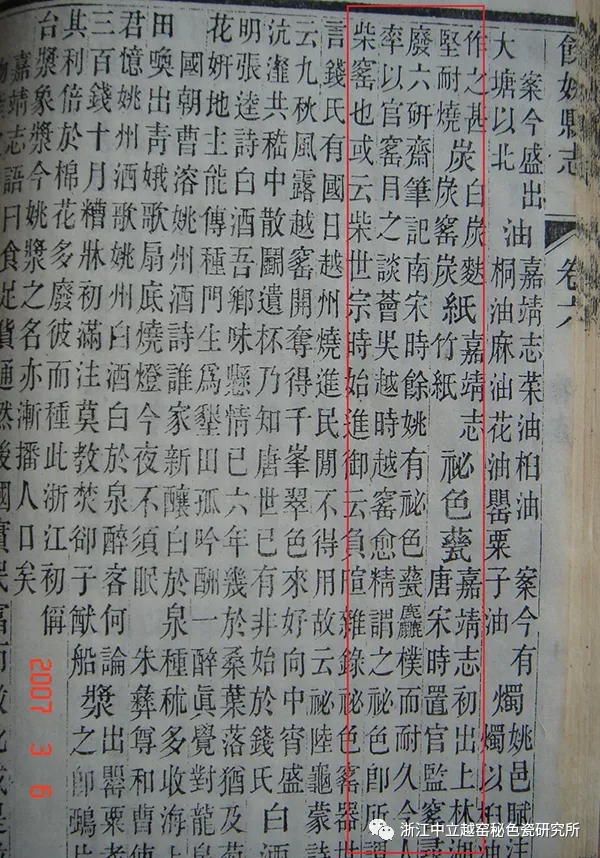 餘姚縣志 卷六
案今盛出 嘉靖志菜油桕油 案今有 姚邑賦注
大塘以北 油 桐油麻油花油罌粟子油 燭 燭以桕油
作之甚 白炭麩 嘉靖志 嘉靖志初出上林湖
堅耐燒 炭 炭窰炭 紙 竹紙 祕色甆 唐宋時置官監窰尋
廢六研齋筆記南宋時餘姚有祕色甆麤樸而耐久今人
率以官窰目之談薈吳越時越窰愈精謂之祕色即所謂
柴窰也或云柴世宗時始進御云負暄雜錄祕色窰器世
言錢氏有國日越州燒進民閒不得用故云祕陸龜蒙詩
云九秋風露越窰開奪得千峯翠色來好向中宵盛
沆瀣共嵇中散鬬遺杯乃知唐世已有非始於錢氏 白酒
明張逵詩白酒吾鄉味懸情已六年幾於桑葉落猶及菊
花妍地主能傳種門生爲墾田孤吟酬一醉眞覺對龍泉
國朝曹溶姚州酒詩誰家新釀白於泉種秫多收海上
田喚出靑娥歌扇底燒燈今夜不須眠 朱彝尊和曹使
君憶姚州酒歌姚州白酒白於泉醉客何論
三百錢十月糟牀初滿注莫教焚卻子猷船 漿 出罌粟者
其利倍於棉花多廢彼而種此浙江初偁 之卽鴉片
台漿象漿今姚漿之名亦漸播人口矣
嘉靖志語曰食足貨通然後國實民富而敎化成是
2007 3 6
浙江中立越窑秘色瓷研究所